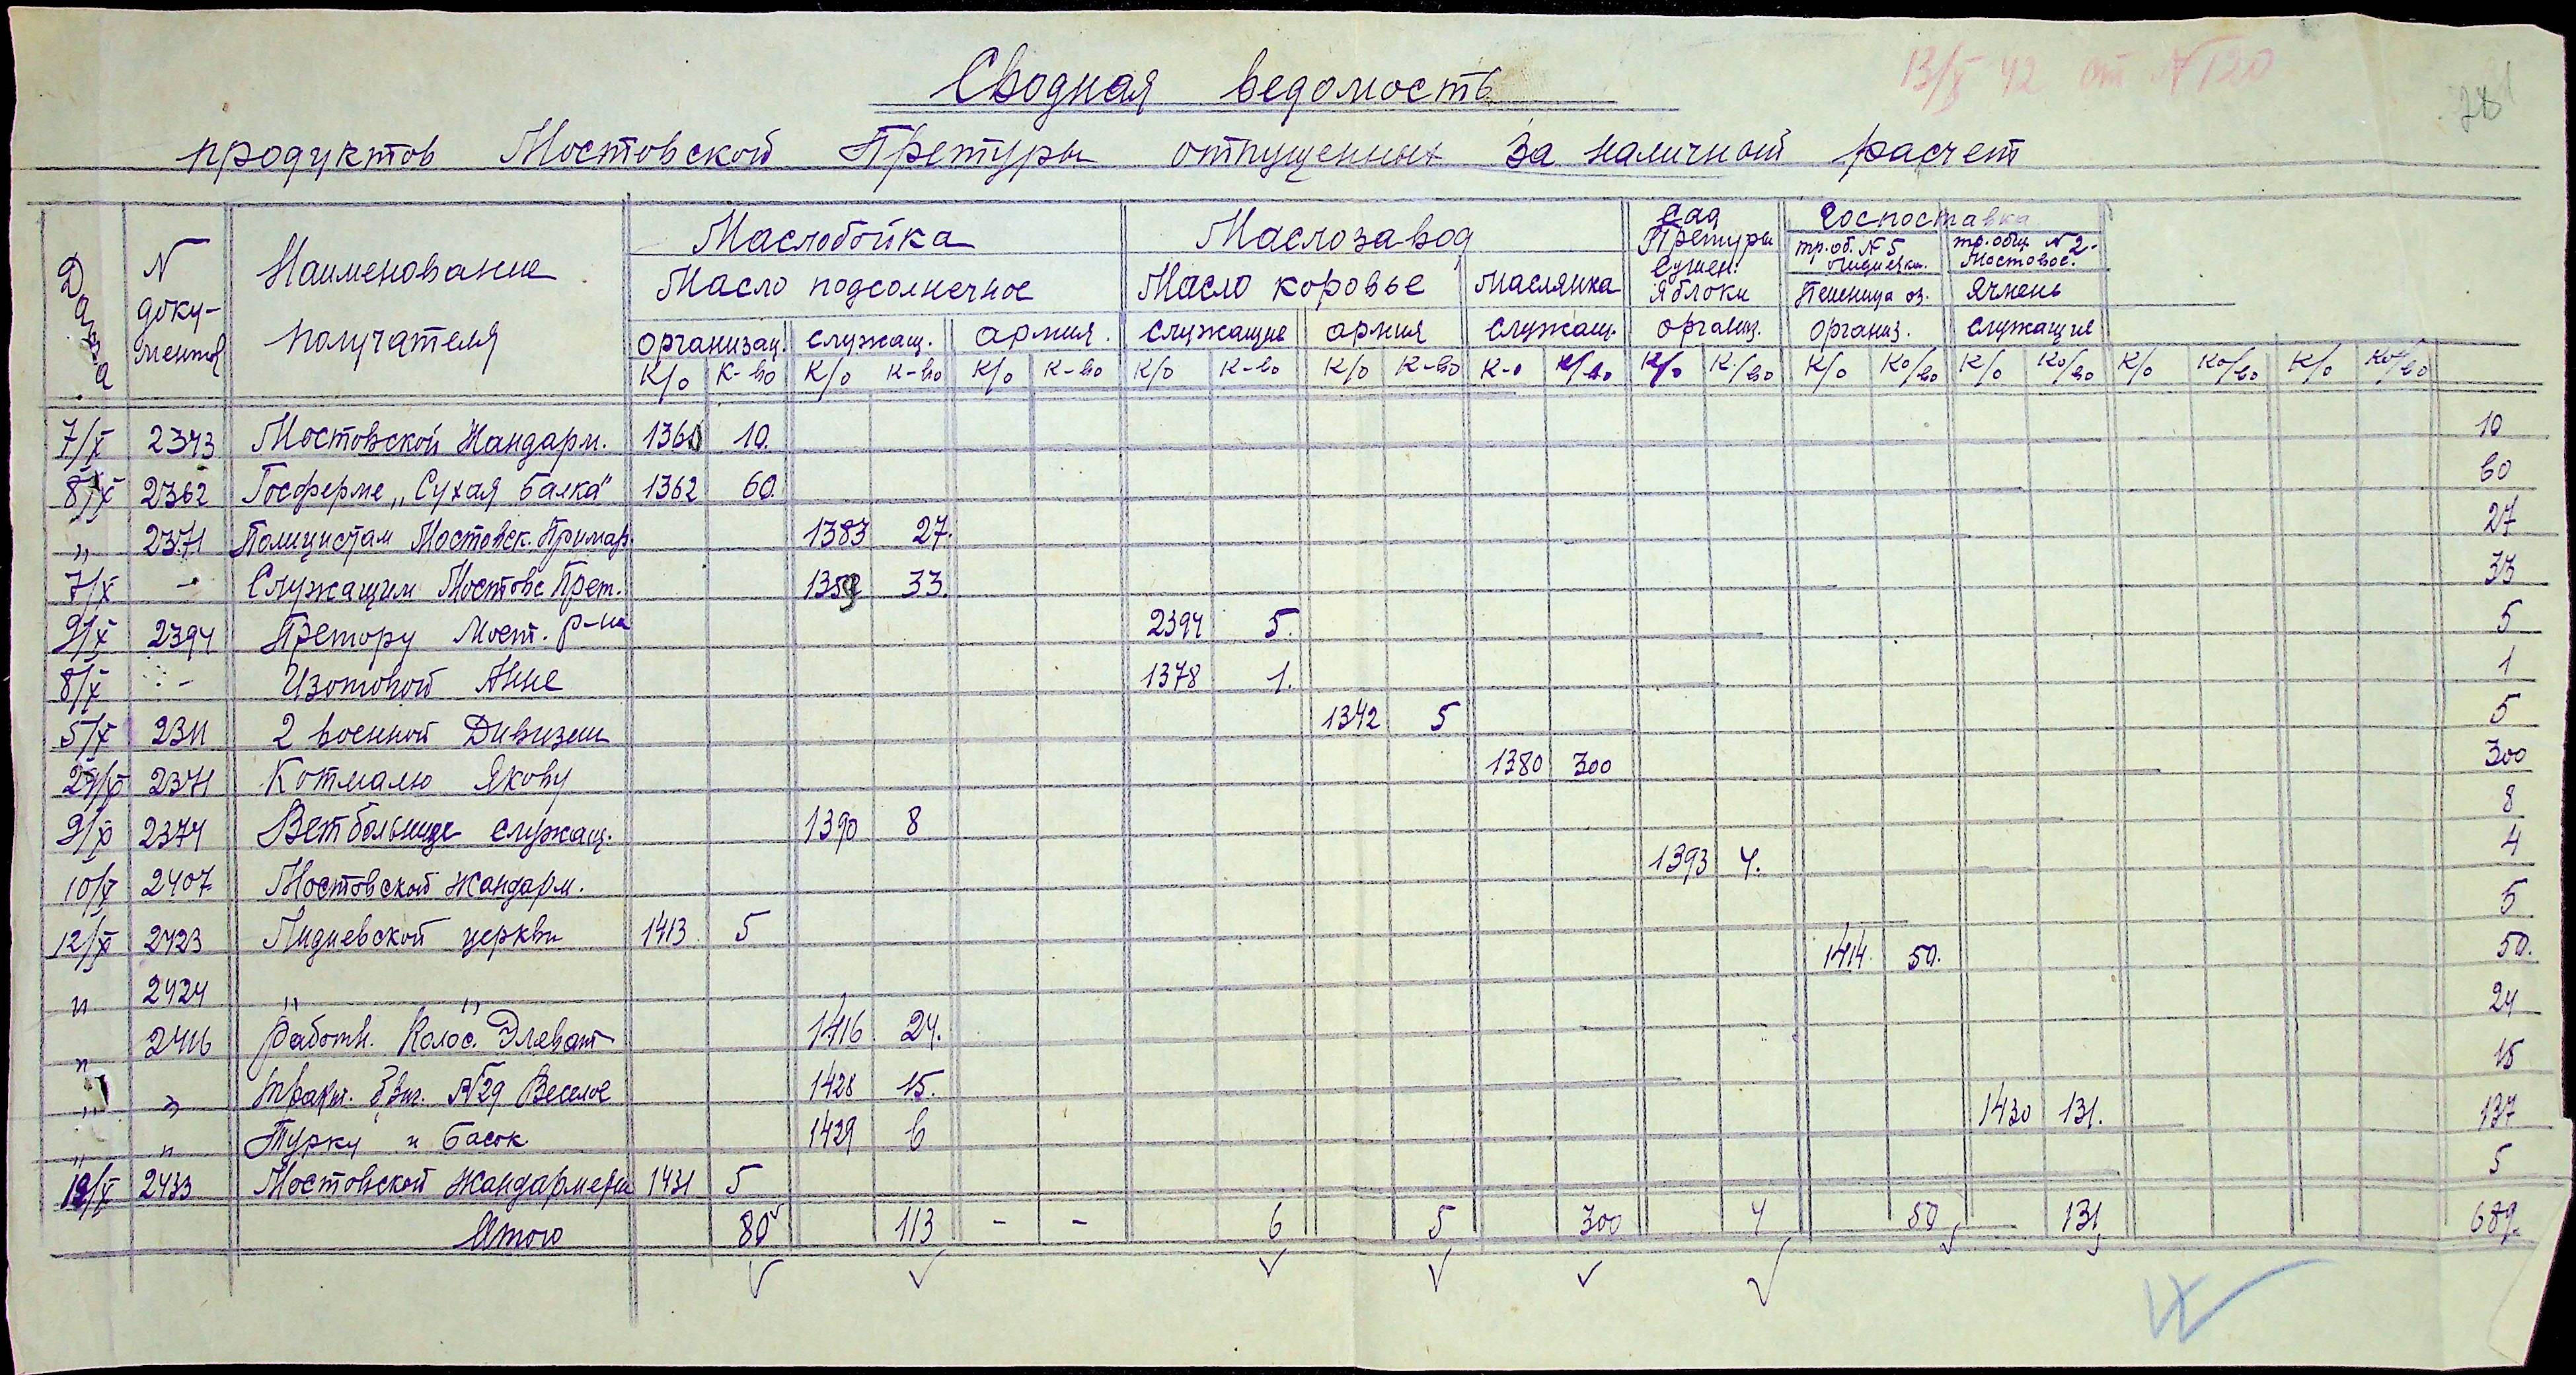 13/X 42 от N 120
28
Сводная ведомость
продуктов Мостовской Претуры отпущенных за наличный расчет
Дата | N документов | Наименование получателя | Маслобойка | Маслозавод | Сад Претуры | Госпоставка
Масло подсолнечное | Масло коровье | Маслянка | Сушен. яблоки | тр. об. N 5 | тр. общ. N 2 Мостовое.
Пшеница оз. | Ячмень
организац. | служащ. | армия. | служащие | армия | служащ. | организ. | организ. | служащие
К/о | К-во | К/о | К-во | К/о | К-во | К/о | К-во | К/о | К-во | К-о | К/во | К/о | К/во | К/о | Ко/во | К/о | Ко/во | К/о | Ко/во | К/о | Ко/во
7/X | 2343 | Мостовской Жандарм. | 1360 | 10. | 10
8/X | 2362 | Госферме „Сухая балка" | 1362 | 60. | 60
„ | 2371 | Полицистам Мостовск. Примар. | 1383 | 27. | 27
7/X | - | Служащим Мостовс Прет. | 1359 | 33. | 33
9/X | 2394 | Претору Мост. р-на | 2394 | 5. | 5
8/X | - | Изотовой Анне | 1378 | 1. | 1
5/X | 2311 | 2 военной Дивизии | 1342 | 5 | 5
2371 | Котмалю Якову | 1380 | 300 | 300
9/X | 2374 | Ветбольнице служащ. | 1390 | 8 | 8
10/X | 2407 | Мостовской жандарм. | 1393 | 4. | 4
12/X | 2423 | Лидиевской церкви | 1413 | 5 | 5
„ | 2424 | „ „ | 1414. | 50. | 50.
„ | 2416 | Работн. Колос. Элеват | 1416 | 24. | 24
„ | „ | N29 Веселое | 1428 | 15. | 15
„ | „ | Турку и Басок | 1429 | 6 | 1430 | 131. | 137
12/X | 2433 | Мостовской Жандармерии | 1431 | 5 | 5
Итого | 80 | 113 | - | - | 6 | 5 | 300 | 4 | 50 | 131 | 689.